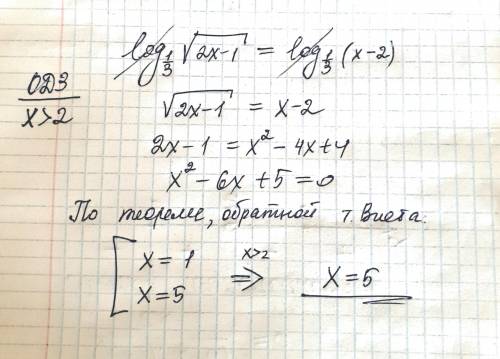 log_{1/3} √(2x-1) = log_{1/3} (x-2)
ОДЗ
x>2
√(2x-1) = x-2
2x-1 = x² - 4x + 4
x² - 6x + 5 = 0
По теореме, обратной т. Виета.
[ x = 1
x = 5
x>2
⇒
x = 5